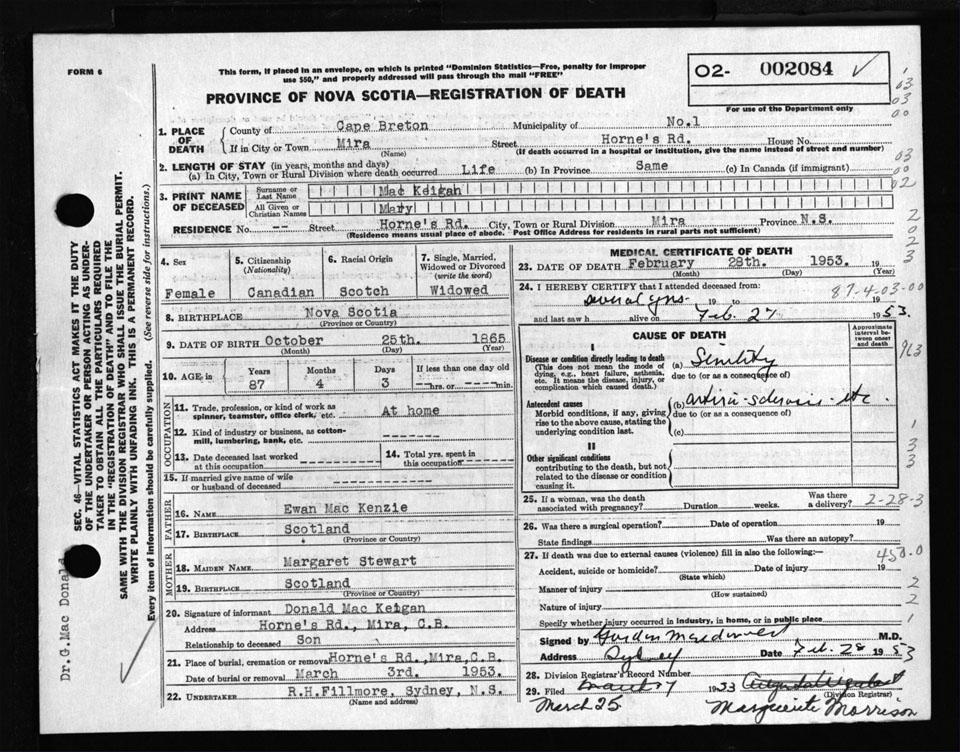 FORM 6
This form, if placed in an envelope, on which is printed "Dominion Statistics—Free, penalty for improper
use $50," and properly addressed will pass through the mail "FREE"
PROVINCE OF NOVA SCOTIA—REGISTRATION OF DEATH
O2- 002084
For use of the Department only
1. PLACE OF DEATH County of Cape Breton Municipality of No.1
If in City or Town Mira Street Horne's Rd. House No.
(Name) (If death occurred in a hospital or institution, give the name instead of street and number)
2. LENGTH OF STAY (in years, months and days)
(a) In City, Town or Rural Division where death occurred Life (b) In Province Same (c) In Canada (if immigrant)
3. PRINT NAME OF DECEASED
Surname or Last Name Mac Keigan
All Given or Christian Names Mary
RESIDENCE No. -- Street Horne's Rd. City, Town or Rural Division Mira Province N.S.
(Residence means usual place of abode. Post Office Address for residents in rural parts not sufficient)
4. Sex Female
5. Citizenship (Nationality) Canadian
6. Racial Origin Scotch
7. Single, Married, Widowed or Divorced (write the word) Widowed
8. BIRTHPLACE Nova Scotia
(Province or Country)
9. DATE OF BIRTH October 25th. 1865
(Month) (Day) (Year)
10. AGE in Years 87 Months 4 Days 3 If less than one day old
hrs. or min.
OCCUPATION
11. Trade, profession, or kind of work as spinner, teamster, office clerk, etc. At home
12. Kind of industry or business, as cotton-mill, lumbering, bank, etc.
13. Date deceased last worked at this occupation
14. Total yrs. spent in this occupation
15. If married give name of wife or husband of deceased
FATHER
16. NAME Ewan Mac Kenzie
17. BIRTHPLACE Scotland
(Province or Country)
MOTHER
18. MAIDEN NAME Margaret Stewart
19. BIRTHPLACE Scotland
(Province or Country)
20. Signature of informant Donald Mac Keigan
Address Horne's Rd., Mira, C.B.
Relationship to deceased Son
21. Place of burial, cremation or removal Horne's Rd.,Mira,C.B.
Date of burial or removal March 3rd. 1953.
22. UNDERTAKER R.H.Fillmore, Sydney, N.S.
(Name and address)
MEDICAL CERTIFICATE OF DEATH
23. DATE OF DEATH February 28th. 1953. 19
(Month) (Day) (Year)
24. I HEREBY CERTIFY that I attended deceased from:
several yrs 19 to 19
and last saw h alive on Feb. 27 1953.
87-4-03-00
CAUSE OF DEATH
Approximate interval between onset and death
I
Disease or condition directly leading to death
(This does not mean the mode of dying, e.g., heart failure, asthenia, etc. It means the disease, injury, or complication which caused death.)
(a) Senility
due to (or as a consequence of)
Antecedent causes
Morbid conditions, if any, giving rise to the above cause, stating the underlying condition last.
(b) arterio-sclerosis-etc.
due to (or as a consequence of)
(c)
II
Other significant conditions
contributing to the death, but not related to the disease or condition causing it.
25. If a woman, was the death associated with pregnancy? Duration weeks. Was there a delivery?
2-28-3
26. Was there a surgical operation? Date of operation 19
State findings Was there an autopsy?
27. If death was due to external causes (violence) fill in also the following:—
Accident, suicide or homicide? Date of injury 19
(State which)
Manner of injury
(How sustained)
Nature of injury
Specify whether injury occurred in industry, in home, or in public place
Signed by M.D.
Address Sydney Date Feb. 28 1953
28. Division Registrar's Record Number
29. Filed March 7 1953
(Division Registrar)
March 25 Marguerite Morrison
SEC. 46—VITAL STATISTICS ACT MAKES IT THE DUTY
OF THE UNDERTAKER OR PERSON ACTING AS UNDER-
TAKER TO OBTAIN ALL THE PARTICULARS REQUIRED
IN THE "REGISTRATION OF DEATH" AND TO FILE THE
SAME WITH THE DIVISION REGISTRAR WHO SHALL ISSUE THE BURIAL PERMIT.
WRITE PLAINLY WITH UNFADING INK. THIS IS A PERMANENT RECORD.
Every item of information should be carefully supplied. (See reverse side for instructions.)
Dr.G.Mac Donald